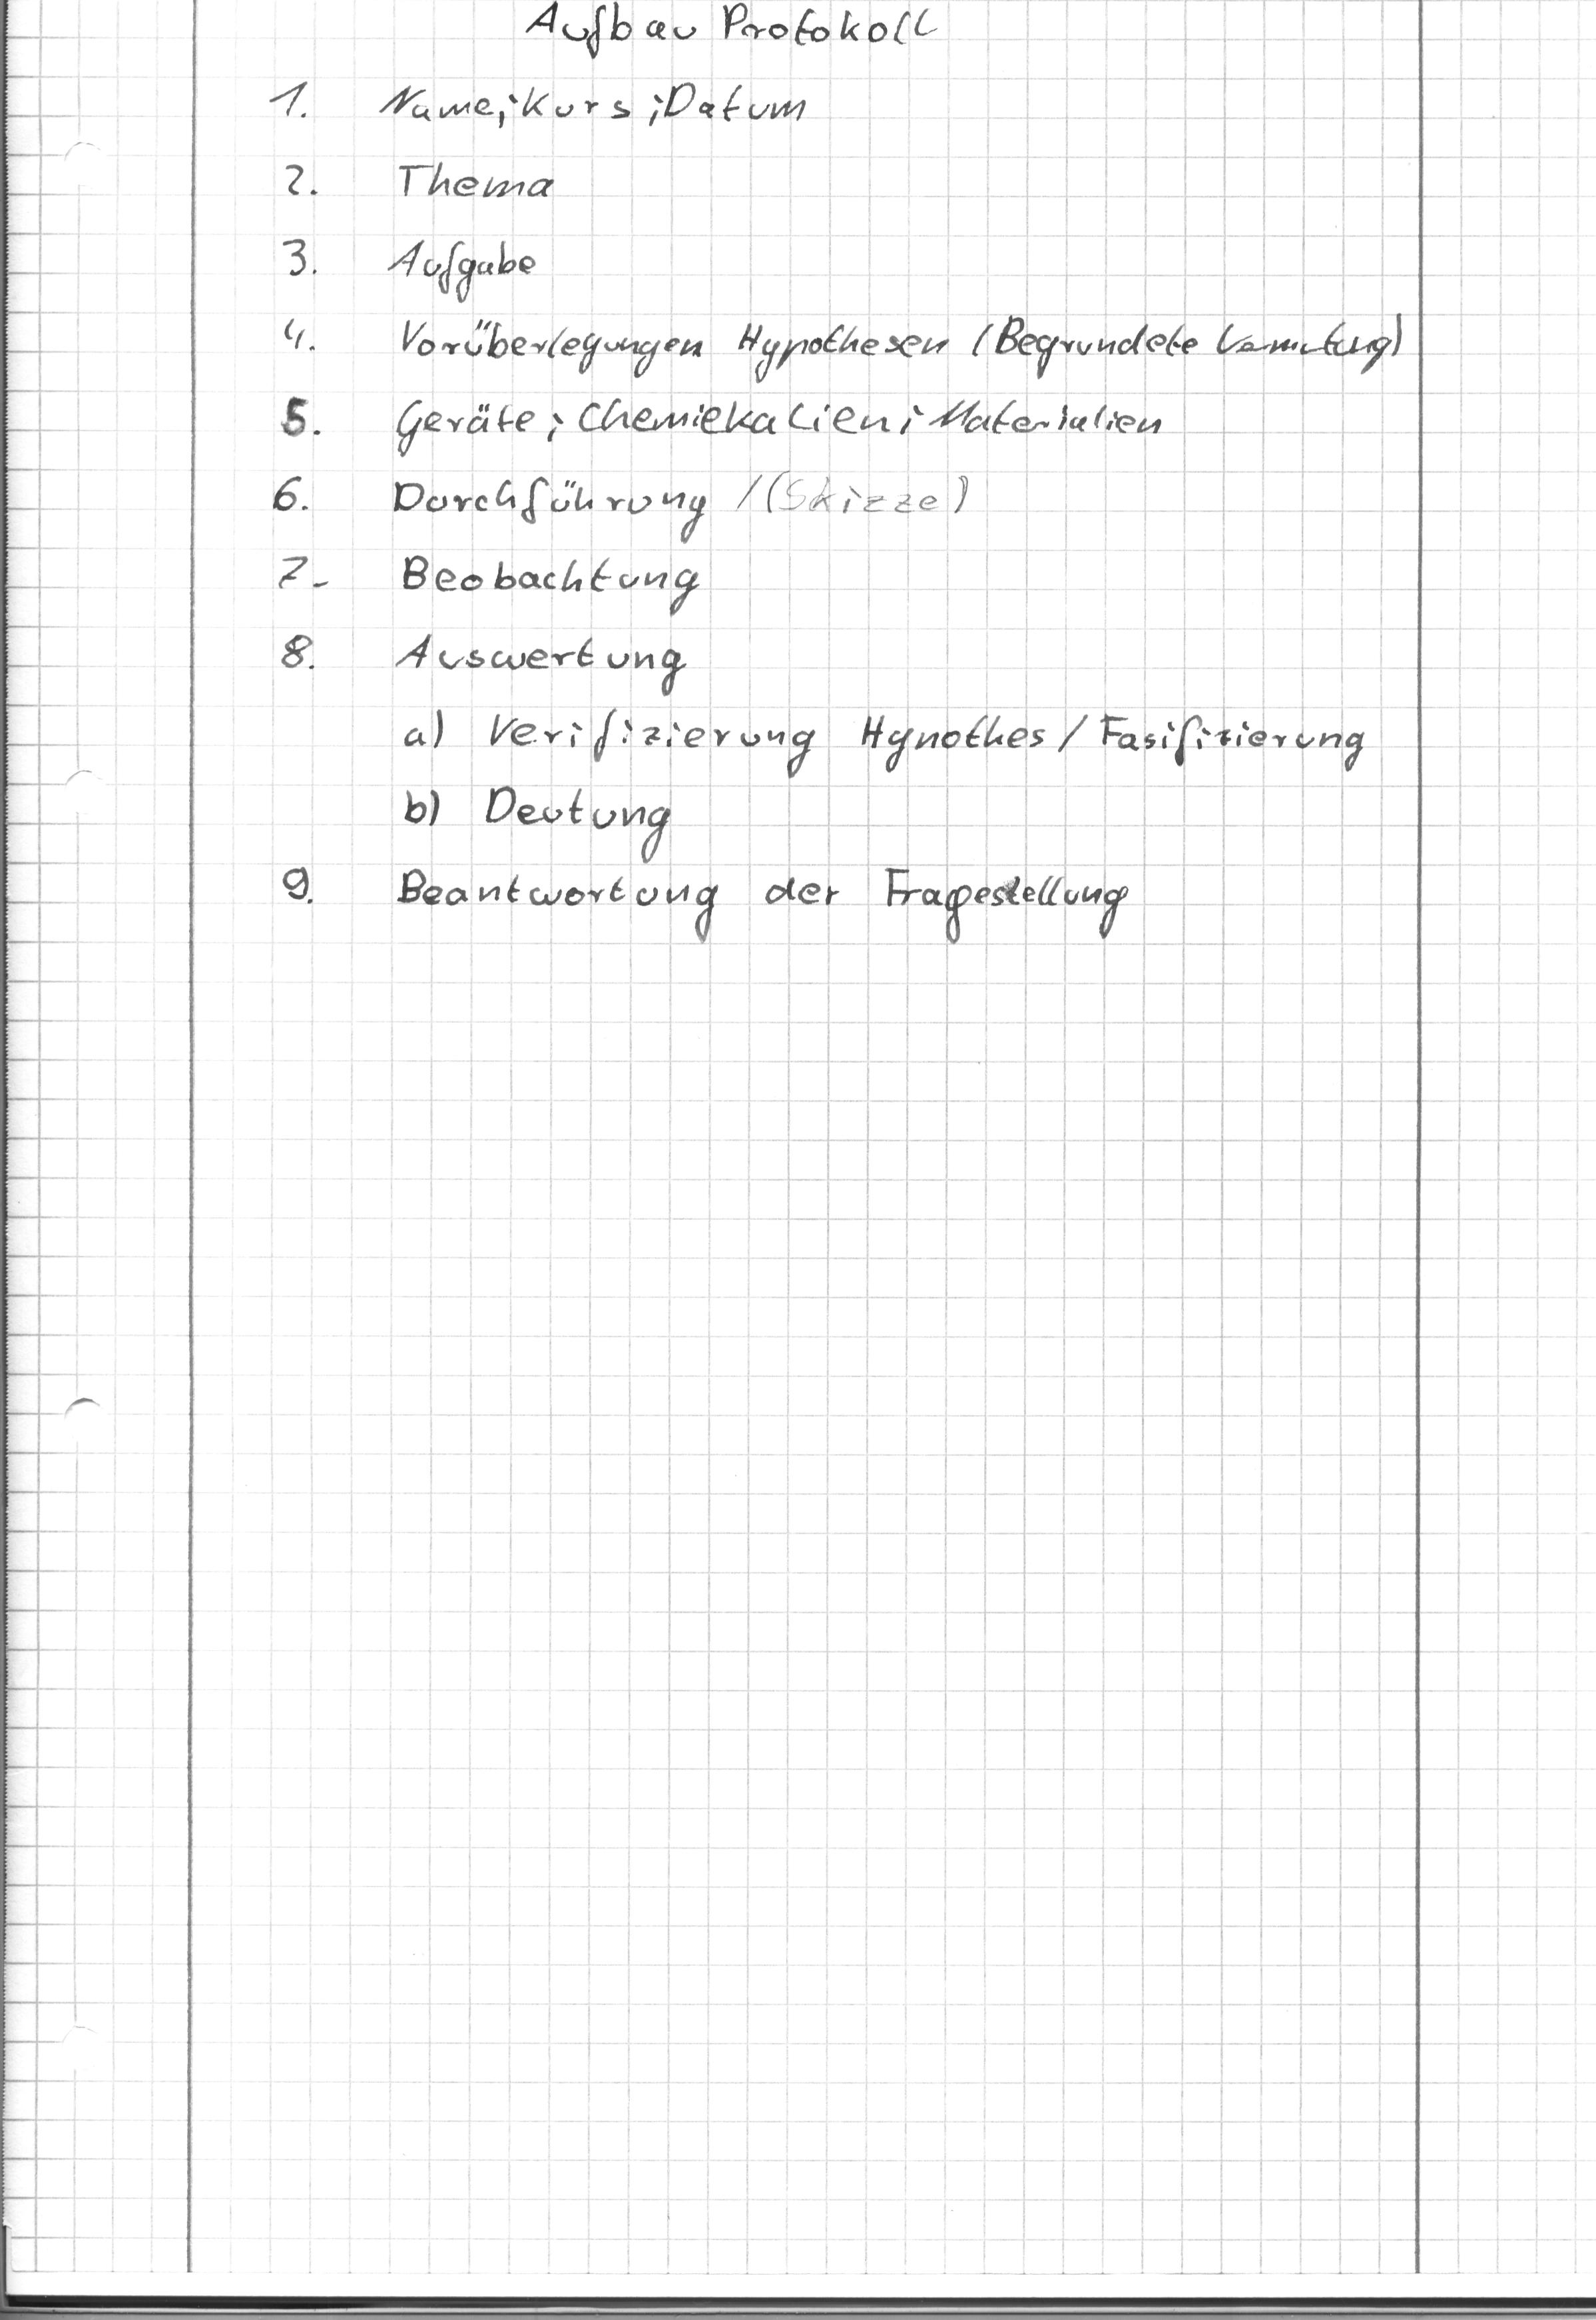 Aufbau Protokoll
1. Name; Kurs; Datum
2. Thema
3. Aufgabe
4. Vorüberlegungen Hypothesen (Begrundete Vermutung)
5. Geräte; Chemiekalien; Materialien
6. Durchführung / (Skizze)
7. Beobachtung
8. Auswertung
a) Verifizierung Hynothes / Fasifizierung
b) Deutung
9. Beantwortung der Fragestellung